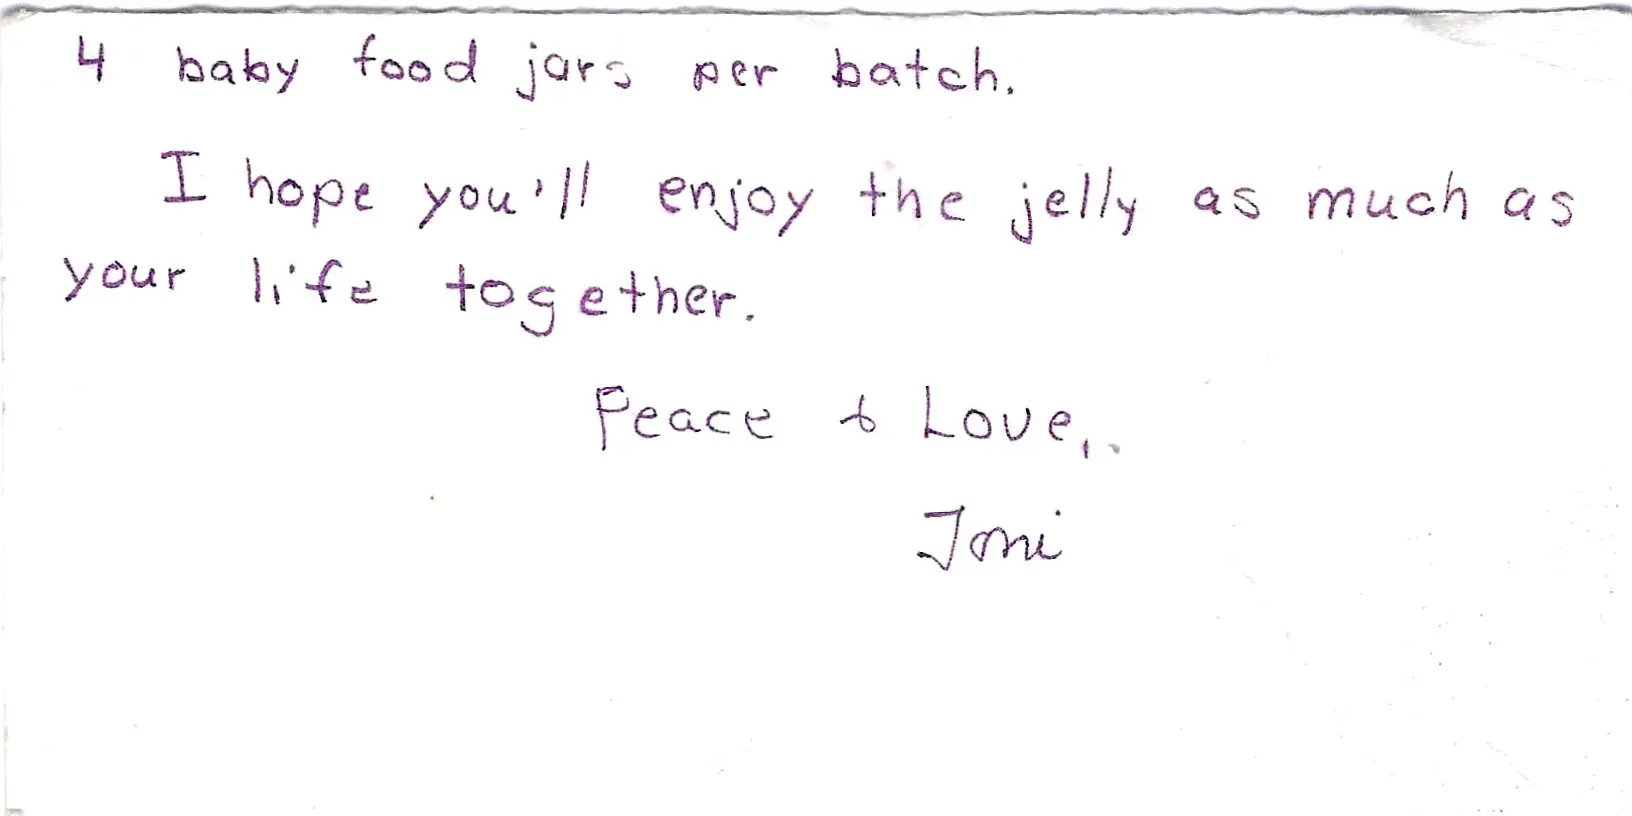 4 baby food jars per batch.
I hope you'll enjoy the jelly as much as
your life together.
Peace & Love,
Joni